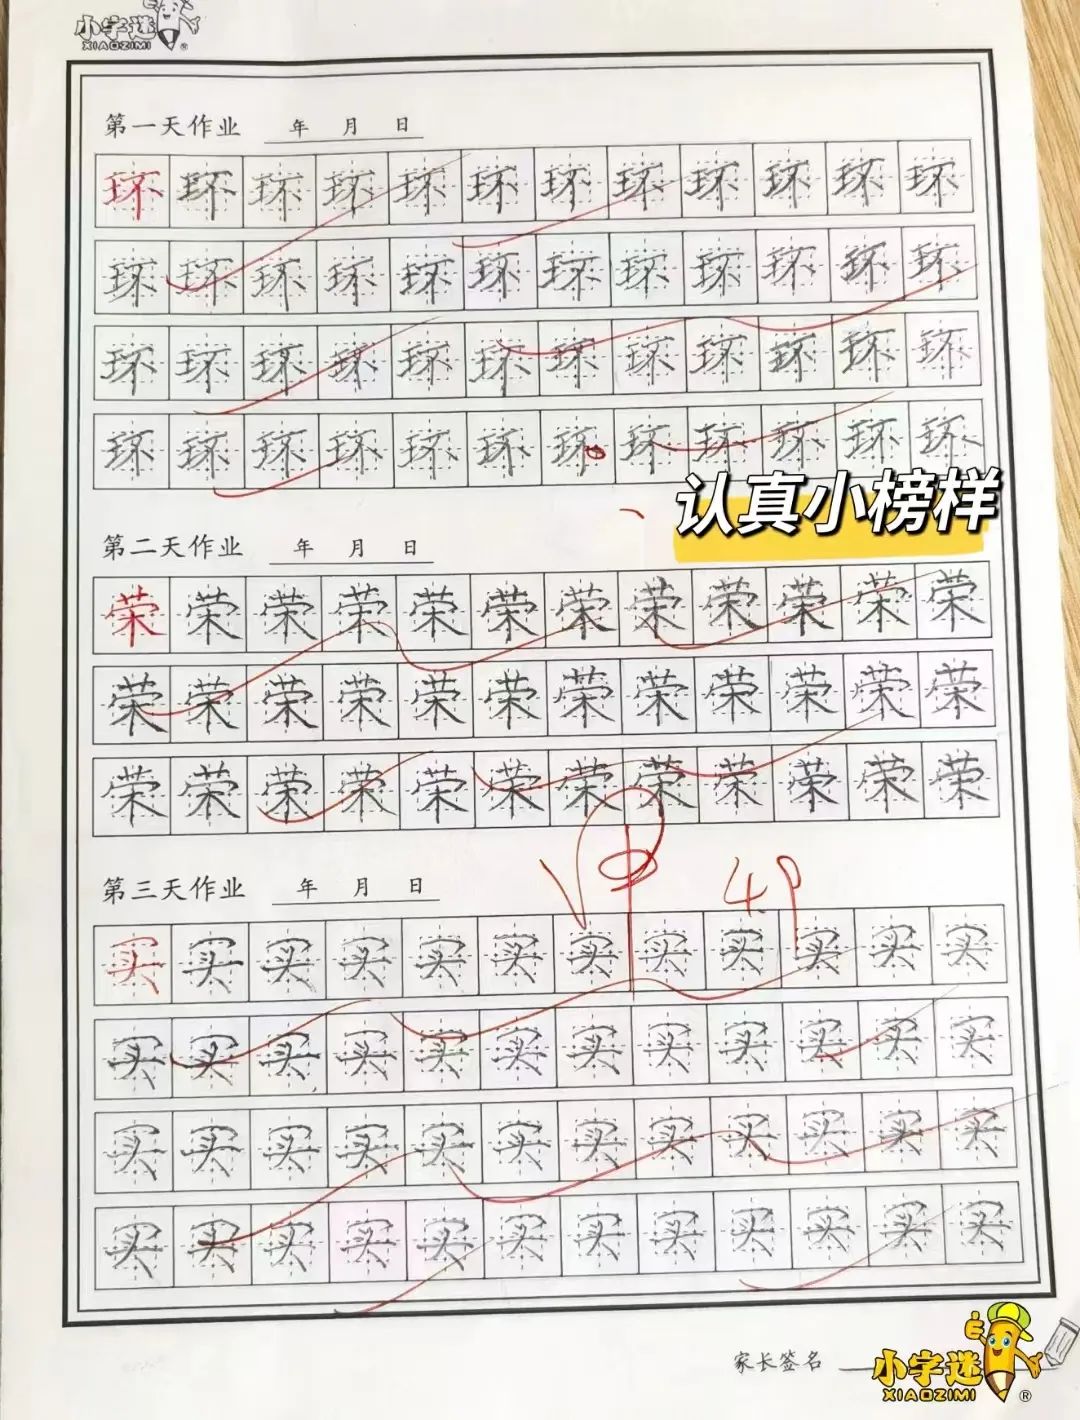 小字迷
XIAOZIMI ®
第一天作业 年 月 日
环 环 环 环 环 环 环 环 环 环 环 环
环 环 环 环 环 环 环 环 环 环 环 环
环 环 环 环 环 环 环 环 环 环 环 环
环 环 环 环 环 环 环 环 环 环 环 环
认真小榜样
第二天作业 年 月 日
荣 荣 荣 荣 荣 荣 荣 荣 荣 荣 荣 荣
荣 荣 荣 荣 荣 荣 荣 荣 荣 荣 荣 荣
荣 荣 荣 荣 荣 荣 荣 荣 荣 荣 荣 荣
第三天作业 年 月 日
买 买 买 买 买 买 买 买 买 买 买 买
买 买 买 买 买 买 买 买 买 买 买 买
买 买 买 买 买 买 买 买 买 买 买 买
买 买 买 买 买 买 买 买 买 买 买 买
家长签名
小字迷
XIAOZIMI ®